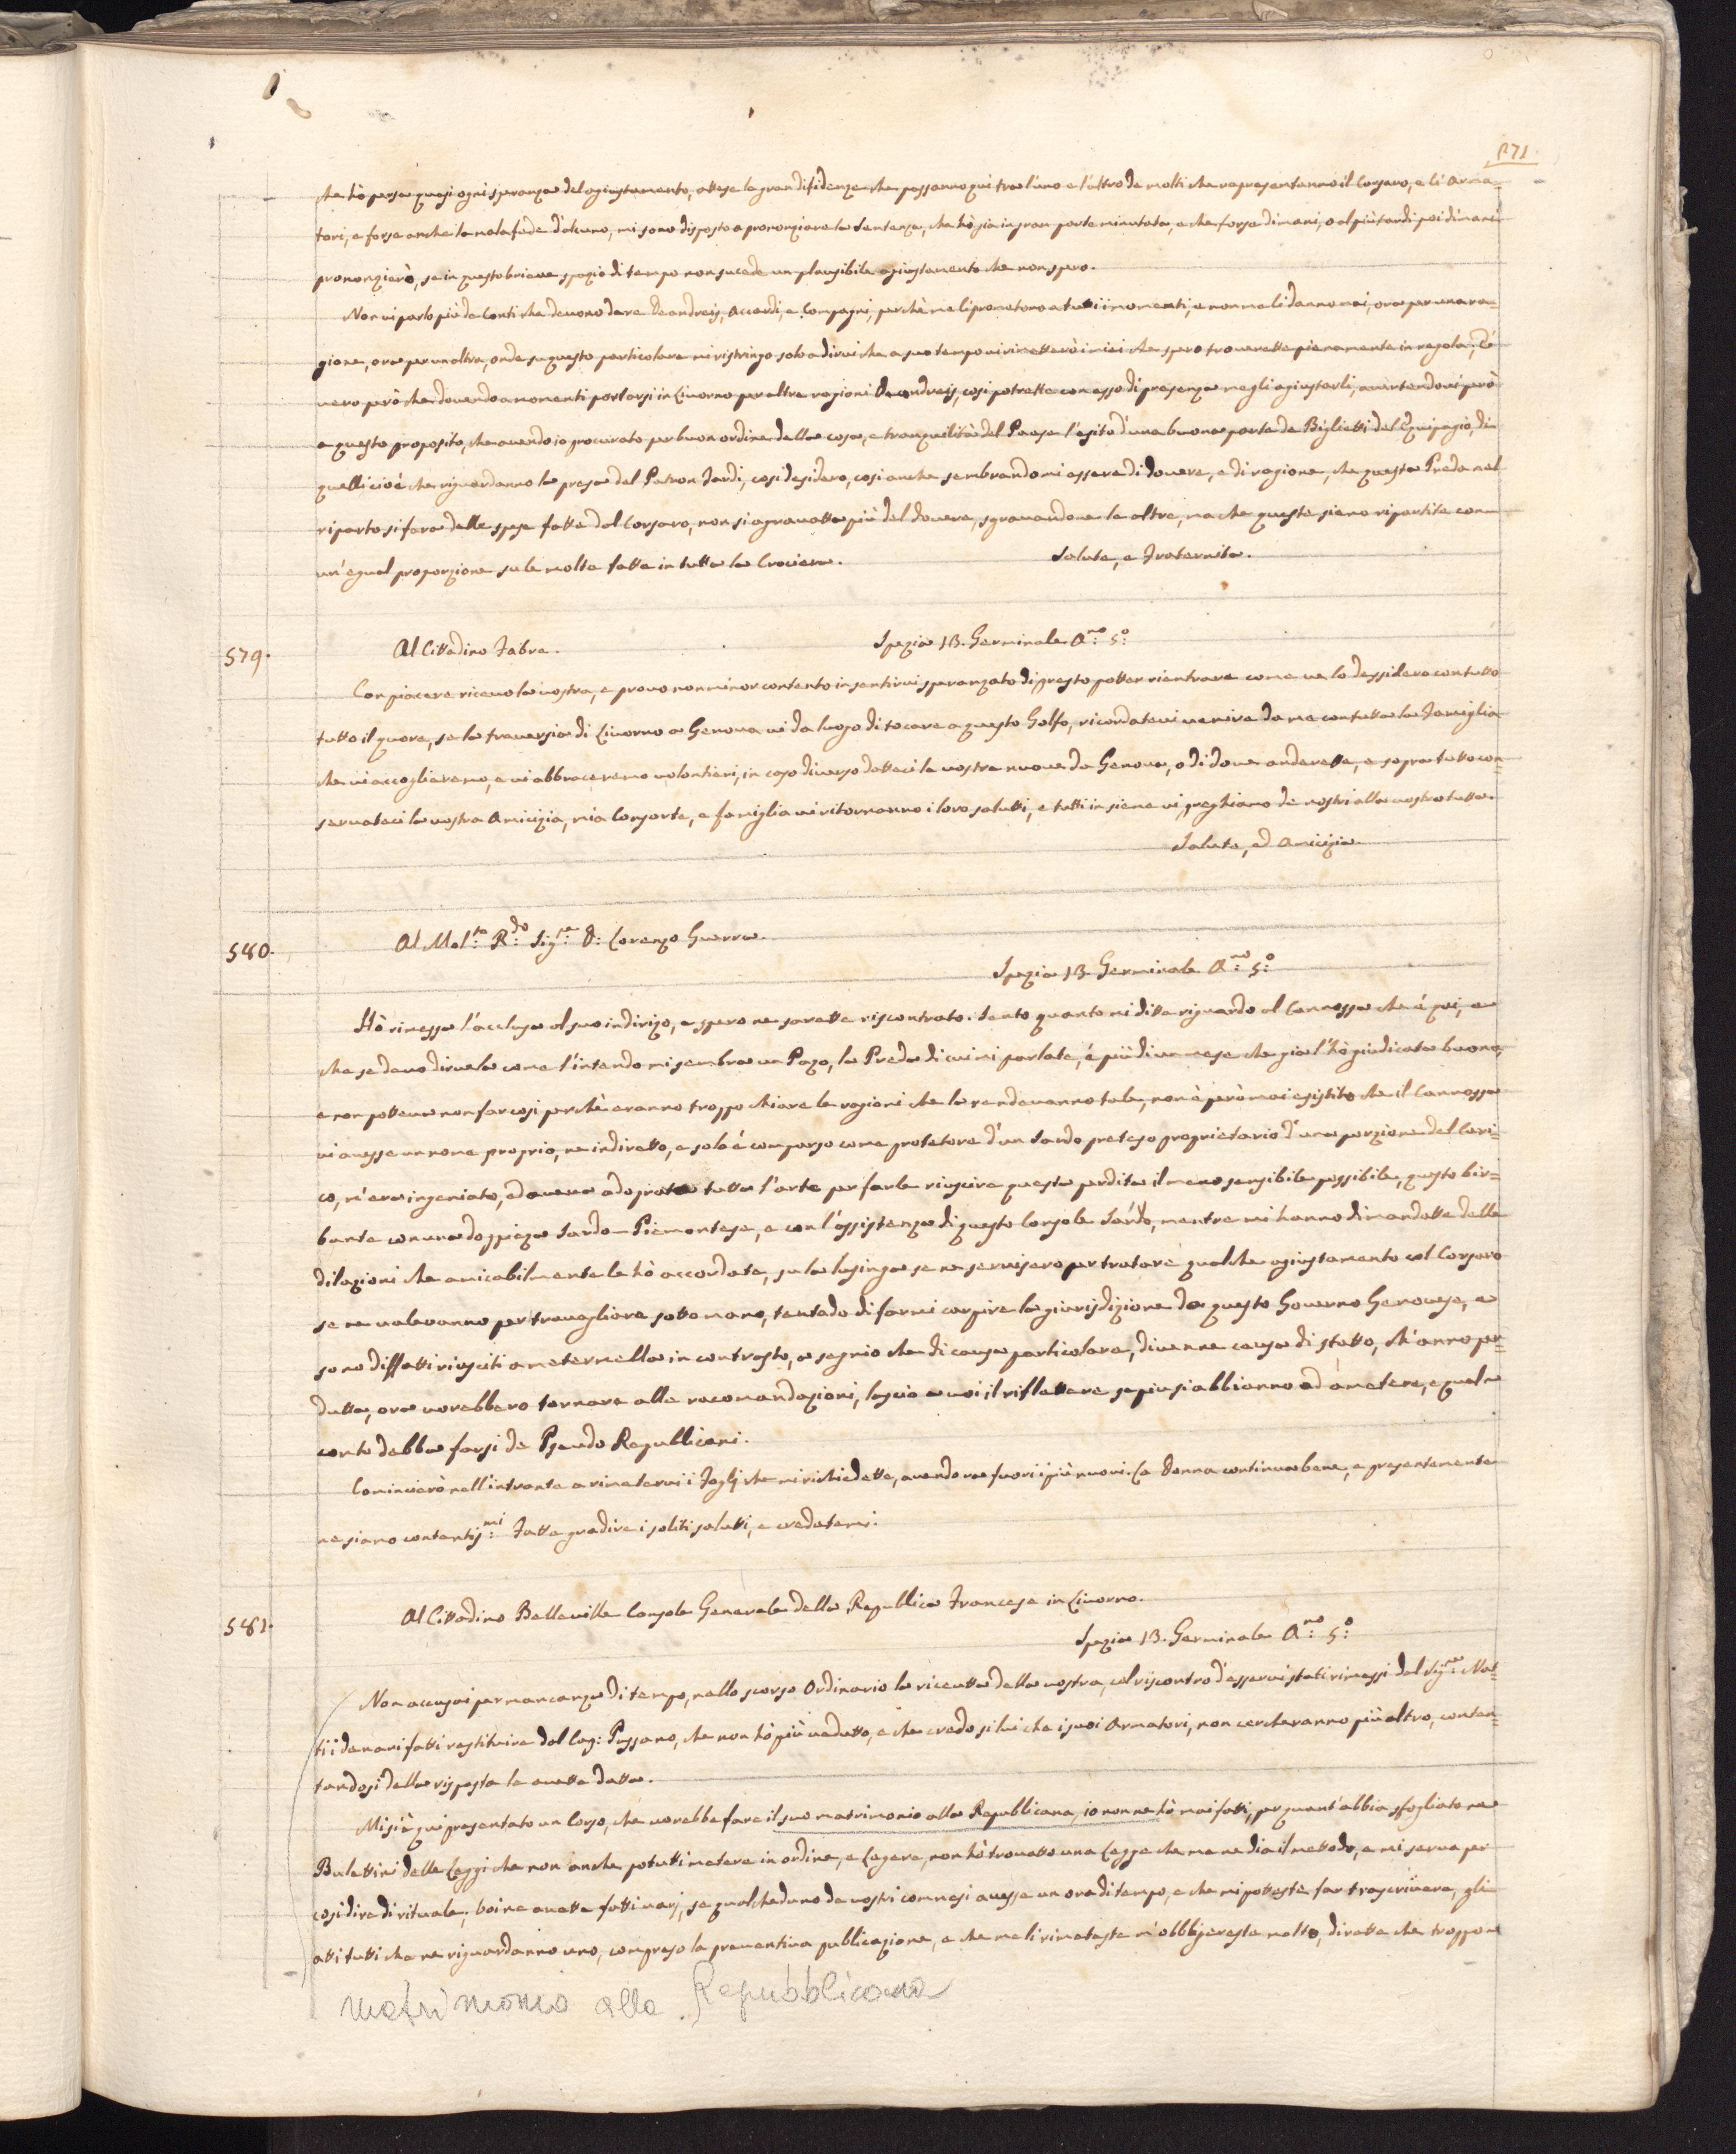 171
che hò persa quasi ogni speranza del agiustamento, attesa la gran difidenza che passanno qui tra l'uno e l'altro de molti che rapresentanno il Corsaro, e li Arma-
tori, e forse anche la mala fede d'alcuno, mi sono disposto a prononziare la sentenza, che hò già in gran parte minutata, e che forse dimani, o al più tardi poi dimani
prononzierò, se in questo brieve spazio di tempo non sucede un plausibile agiustamento che non spero.
Non vi parlo più de Conti che devono dare Deandreis, Accardi, e Compagni, perchè me li prometono a tutti i momenti, e non me li danno mai, ora per una ra-
gione, ora per un altra, onde su questo particolare mi ristringo solo a dirvi che a suo tempo vi rimetterò i miei che spero troverette pienamente in regola; È
vero però che dovendo a momenti portarsi in Livorno per altre ragioni Deandreis, cosi potrette con esso di presenza meglio agiustarli, avertendovi però
a questo proposito, che avendo io procurato per buon ordine della cosa, e tranquilità del Paese l'esito d'una buona parte de Biglietti del Equipagio, di
quelli cioè che riguardanno la presa del Patron Jardi, cosi desidero, cosi anche sembrandomi essere di dovere, e di ragione, che questa Preda nel
riparto si farà delle spese fatte dal Corsaro, non si agravatta più del dovere, sgravandone le altre, ma che queste sieno ripartite con
un'egual proporzione su le molte fatte in tutta la Croviera. Salute, e Fraternita.
579. Al Cittadino Fabre. Spezia 13. Germinale A:no 5:o
Con piacere ricevo la vostra, e provo non minor contento in sentirvi speranzato di presto potter rientrare come ve lo dessidero con tutto
tutto il quore, se la traversia di Livorno a Genova vi da luogo di tocare a questo Golfo, ricordatevi venire da me con tutta la Famiglia
che vi accoglieremo, e vi abbraceremo volontieri, in caso diverso dateci le vostre nuove da Genova, o di dove anderette, e sopra tutto con-
servateci la vostra Amicizia, mia Consorte, e famiglia vi ritornanno i loro salutti, e tutti insieme vi preghiamo de nostri alla vostra tutta.
Salute, ed Amicizia.
580. Al Mol:to R:do Sig:re D: Lorenzo Guerra.
Spezia 13 Germinale A:no 5:o
Hò rimessa l'acclusa al suo indirizo, e spero ne sarette riscontrato. Sento quanto mi dite riguardo al Cannossa che è qui, e
che se devo dirvela come l'intendo mi sembra un Pazo, la Preda di cui mi parlate, é più di un mese che già l'hò giudicata buona,
e non potteva non far cosi perchè eranno troppo chiare le ragioni che la rendevanno tale, non è però mai esistito che il Cannossa
vi avesse un nome proprio, ne indiretto, e solo é comparso come protetore d'un Sardo preteso proprietario d'una porzione del Cari-
co, m'era ingeniato, ed aveva adoprata tutta l'arte per farle riuscire questa perdita il meno sensibile possibile, questo bir-
bante con una doppieza Sardo-Piemontese, e con l'assistenza di questo Console Sardo, mentre mi hanno dimandatte delle
dilazioni che amicabilmente le hò accordate, su la lusinga se ne servissero per tratare qualche agiustamento col Corsaro
se ne valevanno per travagliare sotto mano, tentado di farmi carpire la giurisdizione da questo Governo Genovese, e
sono diffatti riusciti a metermella in contrasto, a segnio che di causa particolare, divenne causa di statto, ch'anno per-
dutta, ora vorebbero tornare alle racomandazioni, lascio a voi il riflettere se più si abbianno ad ametere, e qual
conto debba farsi de Pseudo Republicani.
Cominciarò nell'intrante a rimetervi i Foglj che mi richiedette, avendo ora fuori i più nuovi. La Donna continua bene, e presentemente
ne siamo contentis:mi Fatte gradire i soliti salutti, e credetemi.
581. Al Cittadino Belleville Console Generale della Republica Francese in Livorno.
Spezia 13. Germinale A:no 5:o
Non accusai per mancanza di tempo, nello scorso Ordinario la ricevuta della vostra, col riscontro d'esservi stati rimessi dal Sig:re Mat-
ti i denari fatti restituire dal Cap: Pussano, che non hò più vedutto, e che credo si lui che i suoi Armatori, non cercheranno più altro, conten-
tandosi della risposta le avette data.
Mi si è qui presentato un Corso, che vorebbe fare il suo matrimonio alla Republicana, io non ne hò mai fatti, per quant'abbia sfogliato ne
Bulettini delle Leggi che non anche potutti metere in ordine, e legere, non hò trovatto una Legge che me ne dia il mettodo, e mi serva per
cosi dire di rituale; Voi ne avette fatti varj, se qualcheduno de vostri commessi avesse un ora di tempo, e che mi potteste far trascrivere, gli
atti tutti che ne riguardanno uno, compreso la preventiva publicazione, e che me li rimeteste m'obbligereste molto, dirette che troppo
matrimonio alla Repubblicana